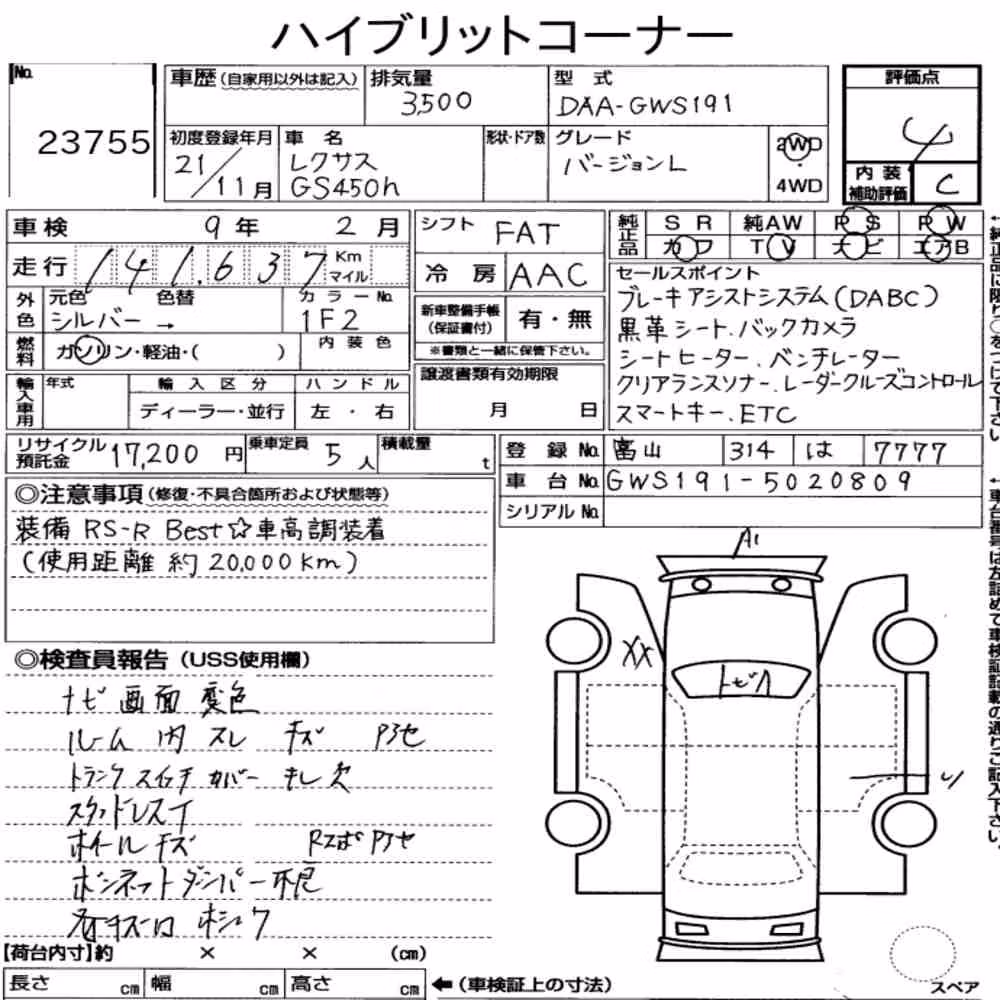 ハイブリットコーナー
No.
23755
車歴(自家用以外は記入)
排気量
3,500
型 式
DAA-GWS191
評価点
4
初度登録年月
21/11月
車 名
レクサス
GS450h
形状・ドア数
グレード
バージョンL
2WD
・
4WD
内 装
補助評価
C
車検 9年 2月
シフト FAT
純正品
S R 純AW P S P W
カワ T V ナビ エアB
走行 141,637 Km マイル
冷 房 AAC
外色
元色 色替
シルバー →
カラーNo.
1F2
新車整備手帳
(保証書付)
有・無
※書類と一緒に保管下さい。
セールスポイント
ブレーキアシストシステム(DABC)
黒革シート.バックカメラ
シートヒーター.ベンチレーター
クリアランスソナー.レーダークルーズコントロール
スマートキー.ETC
燃料
ガソリン・軽油・( )
内 装 色
輸入車用
年式
輸 入 区 分
ディーラー・並行
ハ ン ド ル
左 ・ 右
譲渡書類有効期限
月 日
リサイクル
預託金
17,200円
乗車定員
5人
積載量
t
登 録 No. 富山 314 は 7777
車 台 No. GWS191-5020809
シリアル No.
◎注意事項(修復・不具合箇所および状態等)
装備 RS-R Best☆車高調装着
(使用距離 約 20,000Km)
◎検査員報告(USS使用欄)
ナビ 画面 変色
ルーム 内 スレ キズ
トランク スイッチ カバー キレ 欠
スタッドレスT
ホイール キズ
ボンネットダンパー不良
A1
XX
トビA
U
【荷台内寸】約 × × (cm)
長さ cm 幅 cm 高さ cm
←(車検証上の寸法)
スペア
↑純正品に限り○をつけて下さい。
↑車台番号は左詰めで車検証記載の通りご記入下さい。